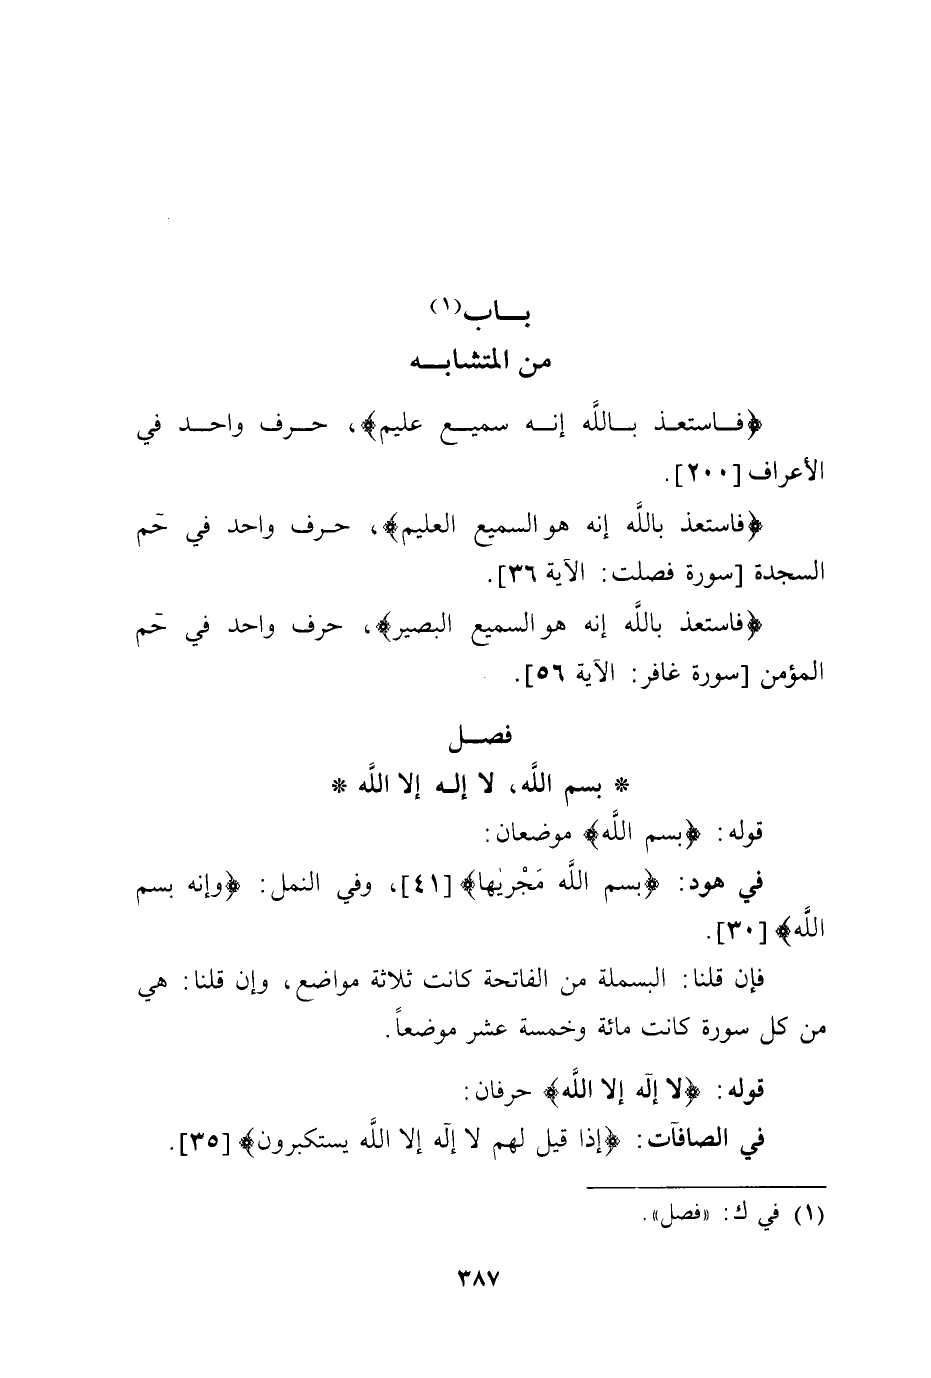 بـــاب(١)
من المتشابـــه
﴿فــاستعــذ بــاللَّه إنــه سميــع عليم﴾، حــرف واحــد في
الأعراف [٢٠٠].
﴿فاستعذ باللَّه إنه هو السميع العليم﴾، حـرف واحد في حٓم
السجدة [سورة فصلت: الآية ٣٦].
﴿فاستعذ باللَّه إنه هو السميع البصير﴾، حرف واحد في حٓم
المؤمن [سورة غافر: الآية ٥٦].
فصــل
* بسم اللَّه، لا إلـه إلا اللَّه *
قوله: ﴿بسم اللَّه﴾ موضعان:
في هود: ﴿بسم اللَّه مَجْريٰها﴾ [٤١]، وفي النمل: ﴿وإنه بسم
اللَّه﴾ [٣٠].
فإن قلنا: البسملة من الفاتحة كانت ثلاثة مواضع، وإن قلنا: هي
من كل سورة كانت مائة وخمسة عشر موضعاً.
قوله: ﴿لا إلٓه إلا اللَّه﴾ حرفان:
في الصافآت: ﴿إذا قيل لهم لا إلٓه إلا اللَّه يستكبرون﴾ [٣٥].
(١) في ك: «فصل».
٣٨٧